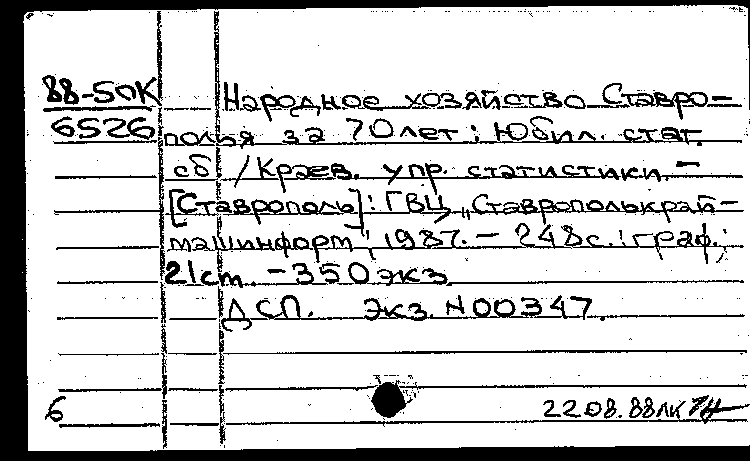 88-5ОК
6526
Народное хозяйство Ставро-
полья за 70 лет: Юбил. стат.
сб. / Краев. упр. статистики. –
[Ставрополь]: ГВЦ „Ставрополькрай-
машинформ", 1987. – 248 с.: граф.;
21 cm. – 350 экз.
ДСП. Экз. N 00347.
6
22.08.88 ЛК